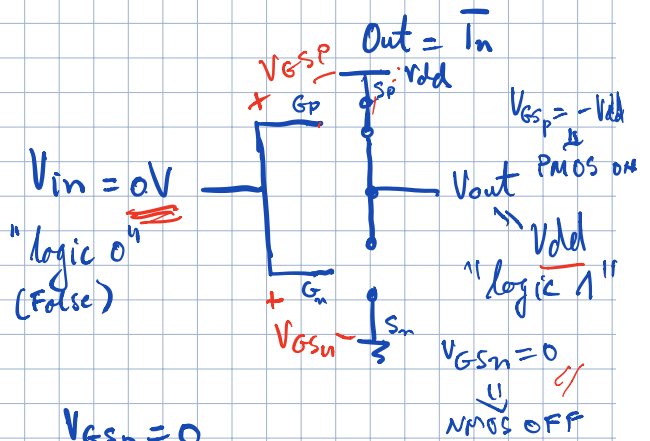 Out = I̅n̅
VGSP
Vdd
+
Gp
Sp
VGSp = -Vdd
⇓
PMOS ON
Vin = 0V
Vout
"logic 0"
(False)
=
Vdd
"logic 1"
Gn
+
VGSn
Sn
VGSn = 0
⇓
NMOS OFF
VGSn = 0